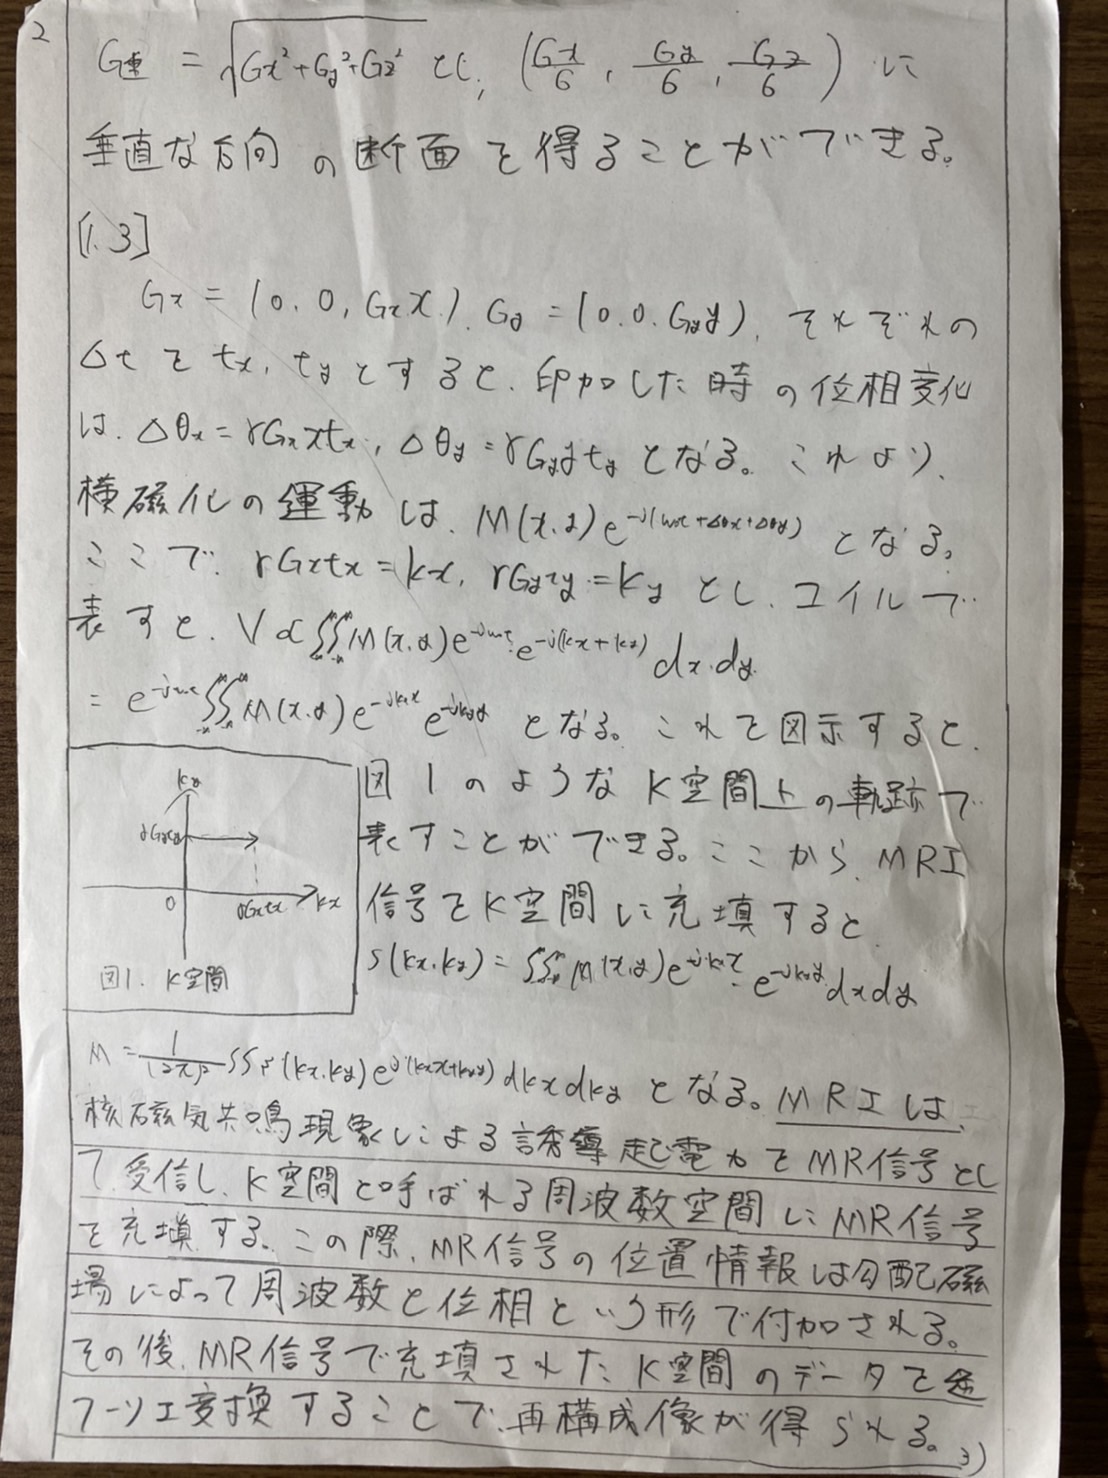 2
G垂 = √Gx²+Gy²+Gz² とし, (Gx/6, Gy/6, Gz/6) に
垂直な方向の断面を得ることができる。
[1.3]
Gx = (0.0, GxX). Gy = (0.0.Gyy), それぞれの
Δtをtx, tyとすると、印加した時の位相変化
は、Δθx = γGxxtx, Δθy = γGyytyとなる。これより、
横磁化の運動は、M(x,y)e^-j(ω₀t+Δθx+Δθy) となる。
ここで、γGxtx = kx, γGyty = kyとし、コイルで
表すと、V∝∬M(x,y)e^-jω₀t・e^-j(kx+ky)dx.dy
= e^-jω₀t∬M(x,y)e^-jkxx e^-jkyy となる。これを図示すると、
図1のようなK空間上の軌跡で
表すことができる。ここから、MRI
信号をK空間に充填すると、
S(kx,ky) = ∬M(x,y)e^-jkxx・e^-jkyy dxdy
ky
γGyty
0
γGxtx
kx
図1. K空間
M = 1/(2π)²∬S(kx,ky)e^j(kxx+kyy)dkxdkyとなる。MRIは、
核磁気共鳴現象による誘導起電力をMR信号とし
て受信し、K空間と呼ばれる周波数空間にMR信号
を充填する。この際、MR信号の位置情報は勾配磁
場によって周波数と位相という形で付加される。
その後、MR信号で充填されたK空間のデータを逆
フーリエ変換することで、再構成像が得られる。3)